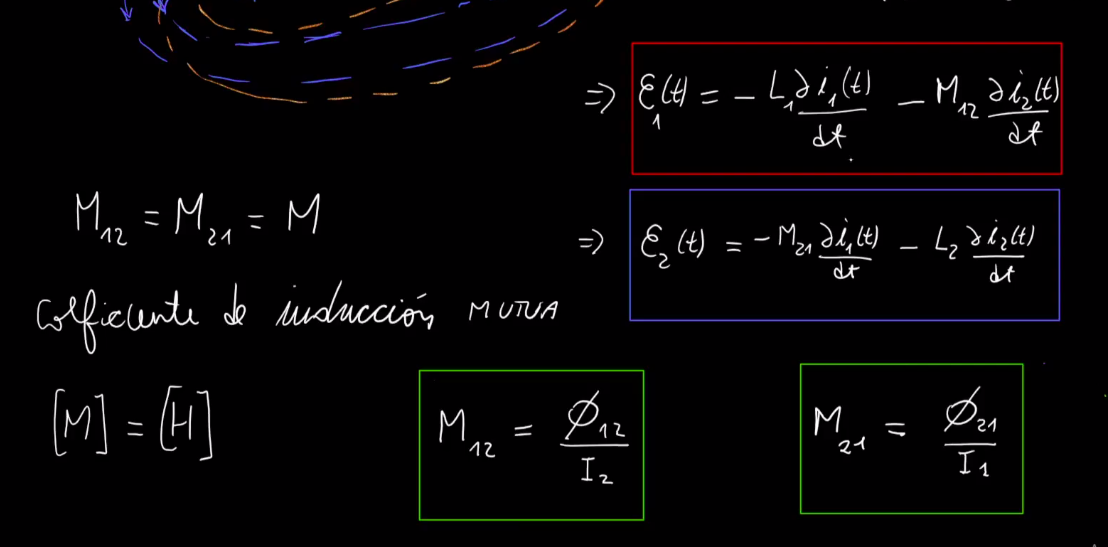 ⇒ ℰ₁(t) = − L₁ ∂i₁(t)/dt − M₁₂ ∂i₂(t)/dt
M₁₂ = M₂₁ = M
⇒ ℰ₂(t) = − M₂₁ ∂i₁(t)/dt − L₂ ∂i₂(t)/dt
coeficiente de inducción MUTUA
[M] = [H]
M₁₂ = Ø₁₂/I₂
M₂₁ = Ø₂₁/I₁